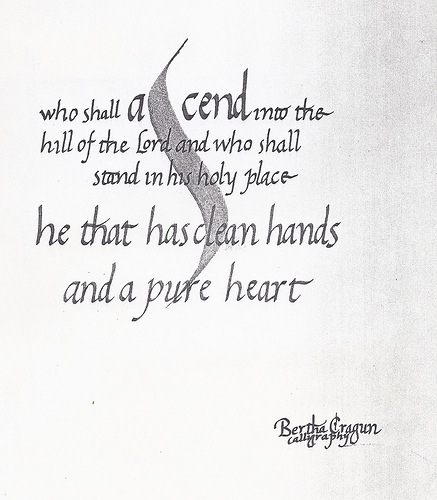 who shall aScend into the
hill of the Lord and who shall
stand in his holy place
he that has clean hands
and a pure heart
Bertha Cragun
calligraphy